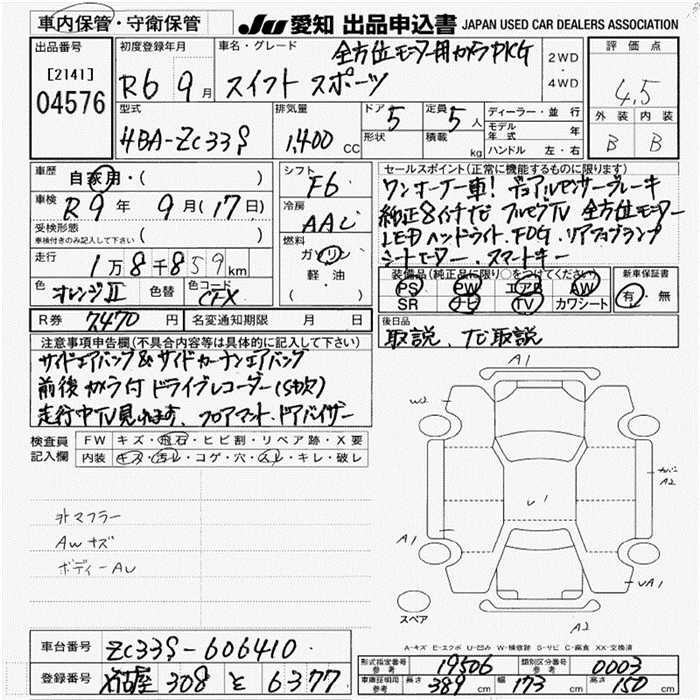 車内保管・守衛保管
JU 愛知 出品申込書 JAPAN USED CAR DEALERS ASSOCIATION
出品番号
[2141]
04576
初度登録年月
R6 9月
車名・グレード
全方位モニター用カメラPKG
スイフト スポーツ
2WD
・
4WD
評価点
4.5
外装 内装
B B
型式
4BA-ZC33S
排気量
1,400 CC
ドア 5
形状
定員 5人
積載 kg
ディーラー・並行
モデル年式 年
ハンドル 左・右
車歴
自家用・( )
車検
R9年 9月(17日)
受検形態
車検付きのみ記入して下さい ( )
走行
1万8千859km
色 オレンジII 色替 色コード CFX
シフト
F6
冷房
AAC
燃料
ガソリン
軽油
( )
セールスポイント(正常に機能するものに限ります)
ワンオーナー車! デュアルセンサーブレーキ
純正8インチナビ フルセグTV 全方位モニター
LEDヘッドライト.FOG.リアフォグランプ
シートヒーター.スマートキー
装備品(純正品に限り○をつけてください)
PS PW エアB AW
SR ナビ TV カワシート
新車保証書
有・無
R券 7470円 名変通知期限 月 日
後日品
取説、TV取説
注意事項申告欄(不具合内容等は具体的に記入して下さい)
サイドエアバッグ&サイドカーテンエアバッグ
前後カメラ付ドライブレコーダー(S社欠)
走行中TV見れます、フロアマット.ドアバイザー
検査員
記入欄
FW キズ・飛石・ヒビ割・リペア跡・X要
内装 キズ・汚レ・コゲ・穴・スレ・キレ・破レ
外マフラー
AWキズ
ボディーAU
A1
W2
U1
カバー
A2
A1
UA1
スペア
A2
A-キズ E-エクボ U-凹み W-補修跡 S-サビ C-腐食 XX-交換済
車台番号 ZC33S-606410
登録番号 名古屋 308 と 6377
形式指定番号
参考
19506
類別区分番号
参考
0003
車庫証明用
参考
長さ 389cm 幅 173cm 高さ 150cm